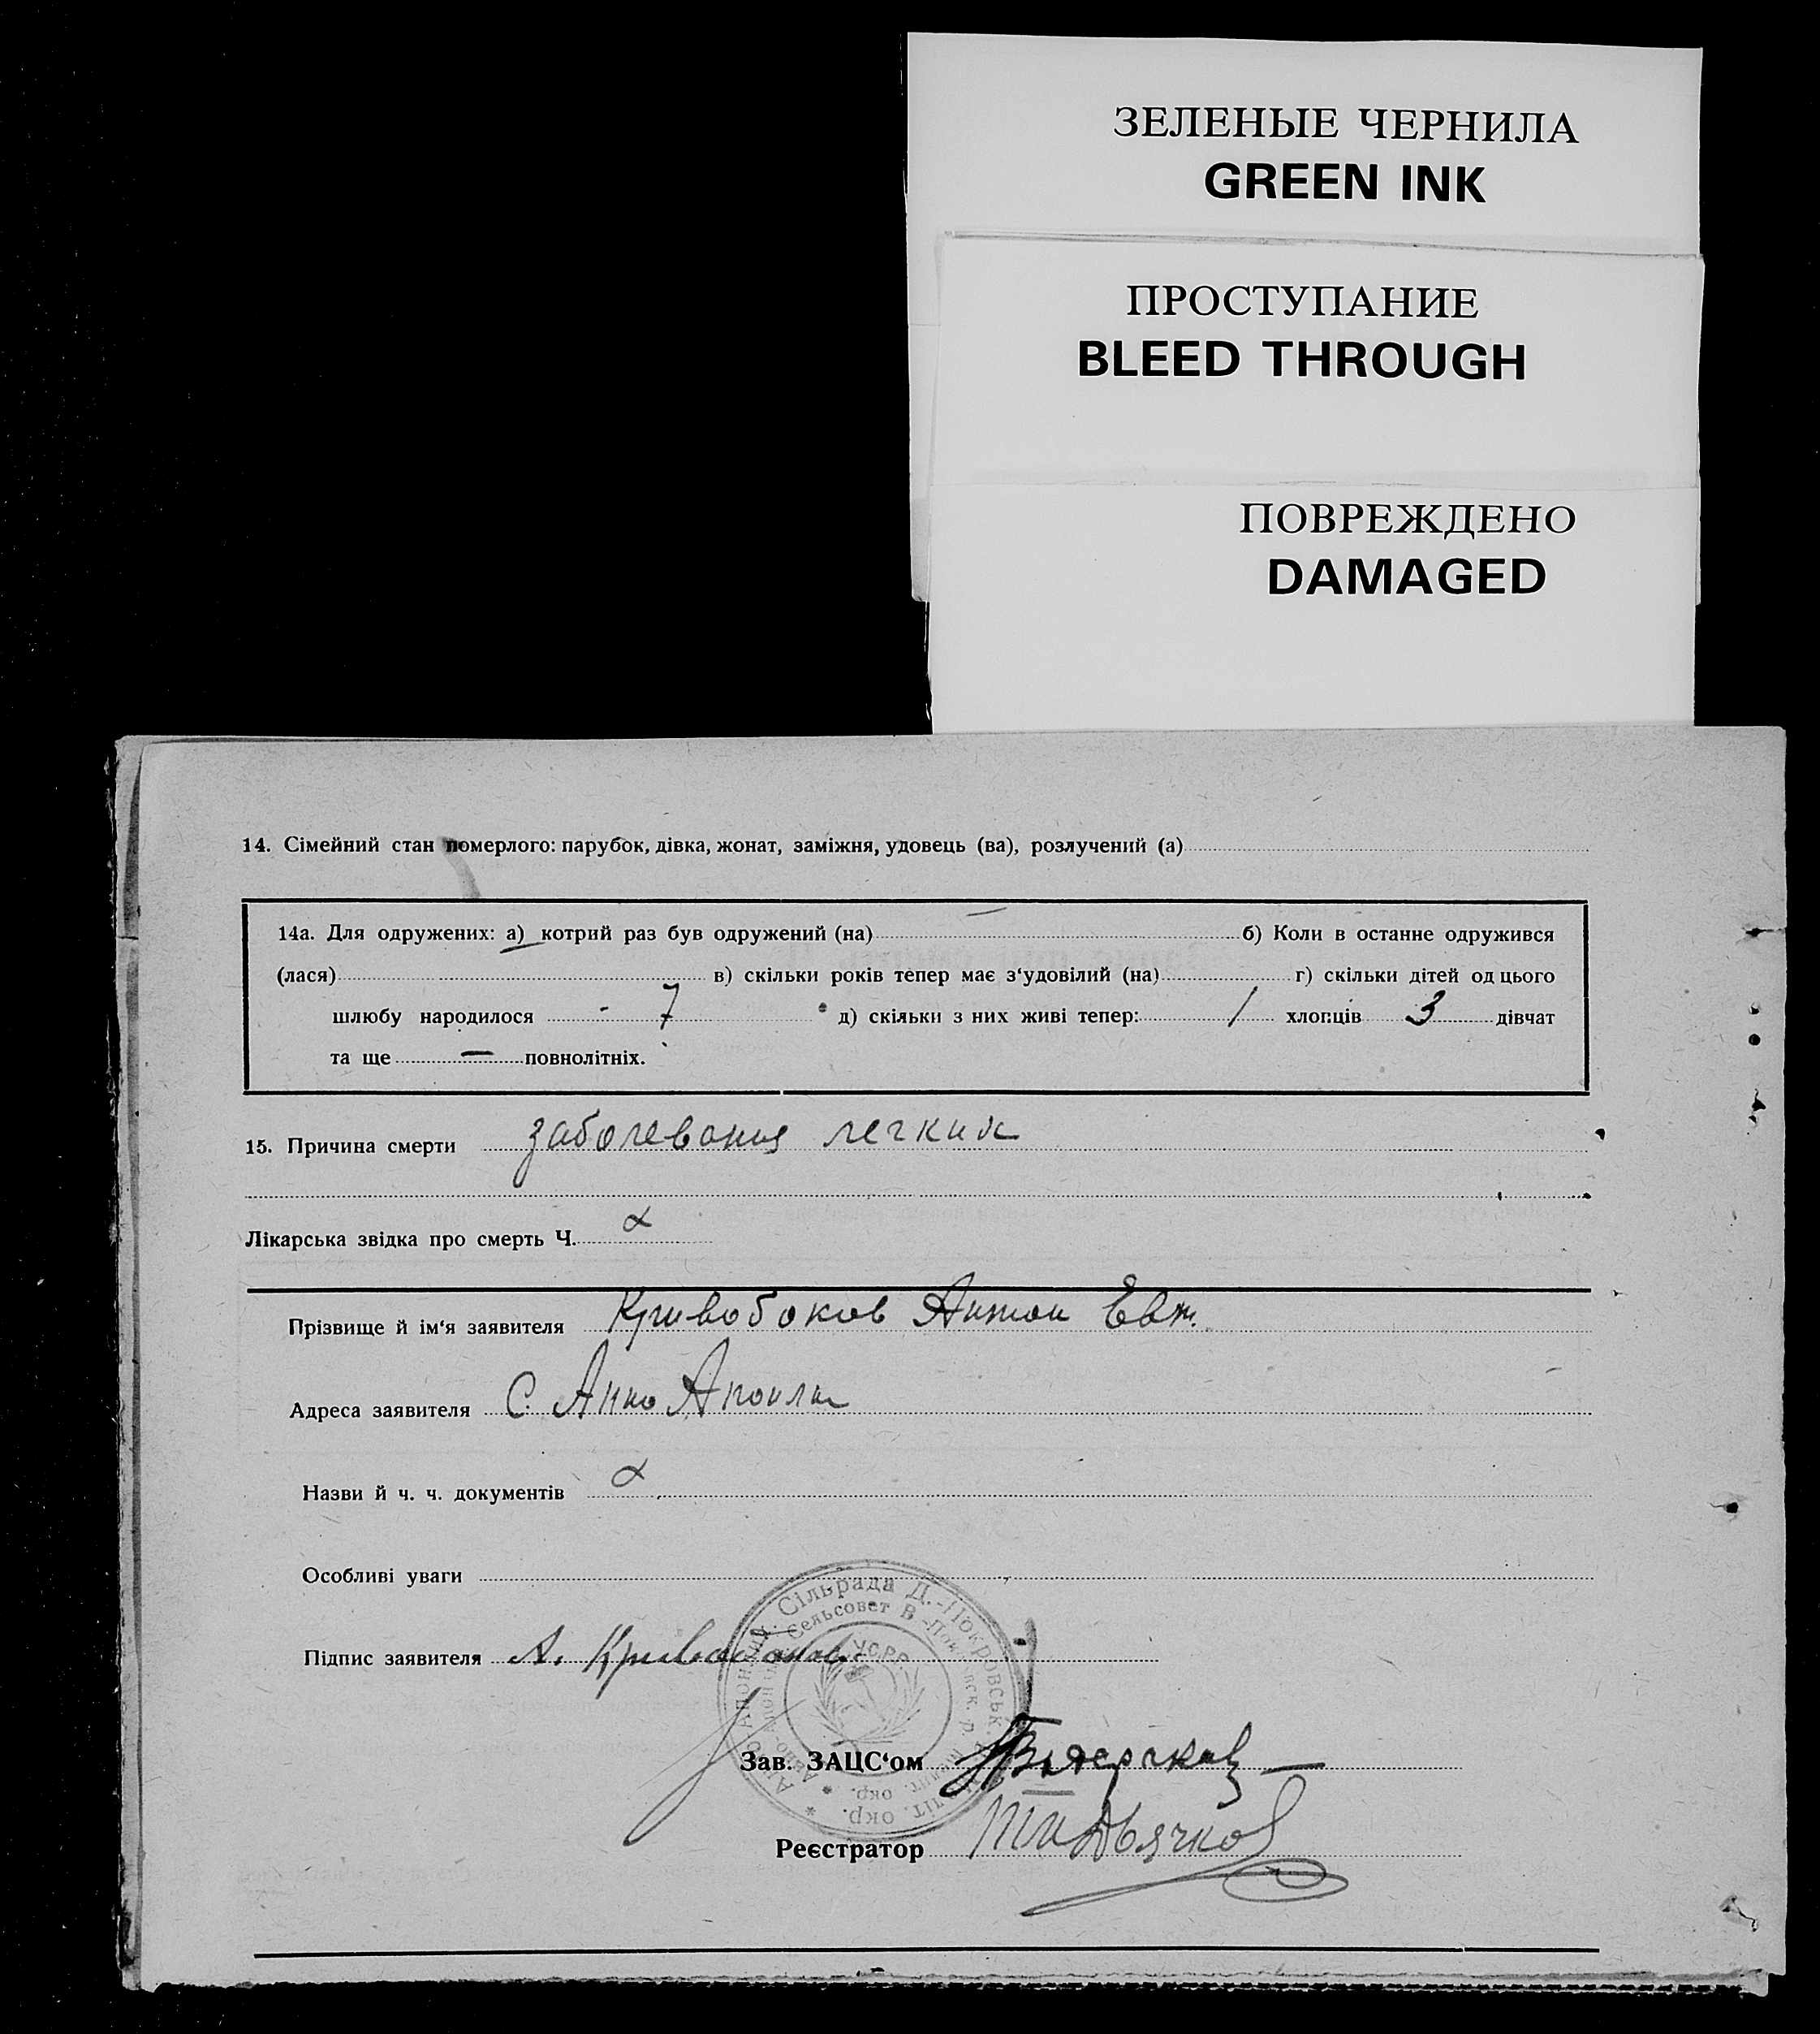 ЗЕЛЕНЫЕ ЧЕРНИЛА
GREEN INK
ПРОСТУПАНИЕ
BLEED THROUGH
ПОВРЕЖДЕНО
DAMAGED
14. Сімейний стан померлого: парубок, дівка, жонат, заміжня, удовець (ва), розлучений (а)
14а. Для одружених: а) котрий раз був одружений (на) — б) Коли в останне одружився
(лася) в) скільки років тепер має з‘удовілий (на) г) скільки дітей од цього
шлюбу народилося - 7 д) скільки з них живі тепер: 1 хлопців 3 дівчат
та ще — повнолітніх.
15. Причина смерти заболевания легких
Лікарська звідка про смерть Ч.
Прізвище й ім‘я заявителя Кривобоков Антон Евт.
Адреса заявителя С. Анно
Назви й ч. ч. документів
Особливі уваги
Сільрада Д.-Покровськ.
Сельсовет В.-Покровск. р.
УСРР
окр.
Підпис заявителя А. Кривобоков
Зав. ЗАЦС‘ом
Реєстратор Дьячков